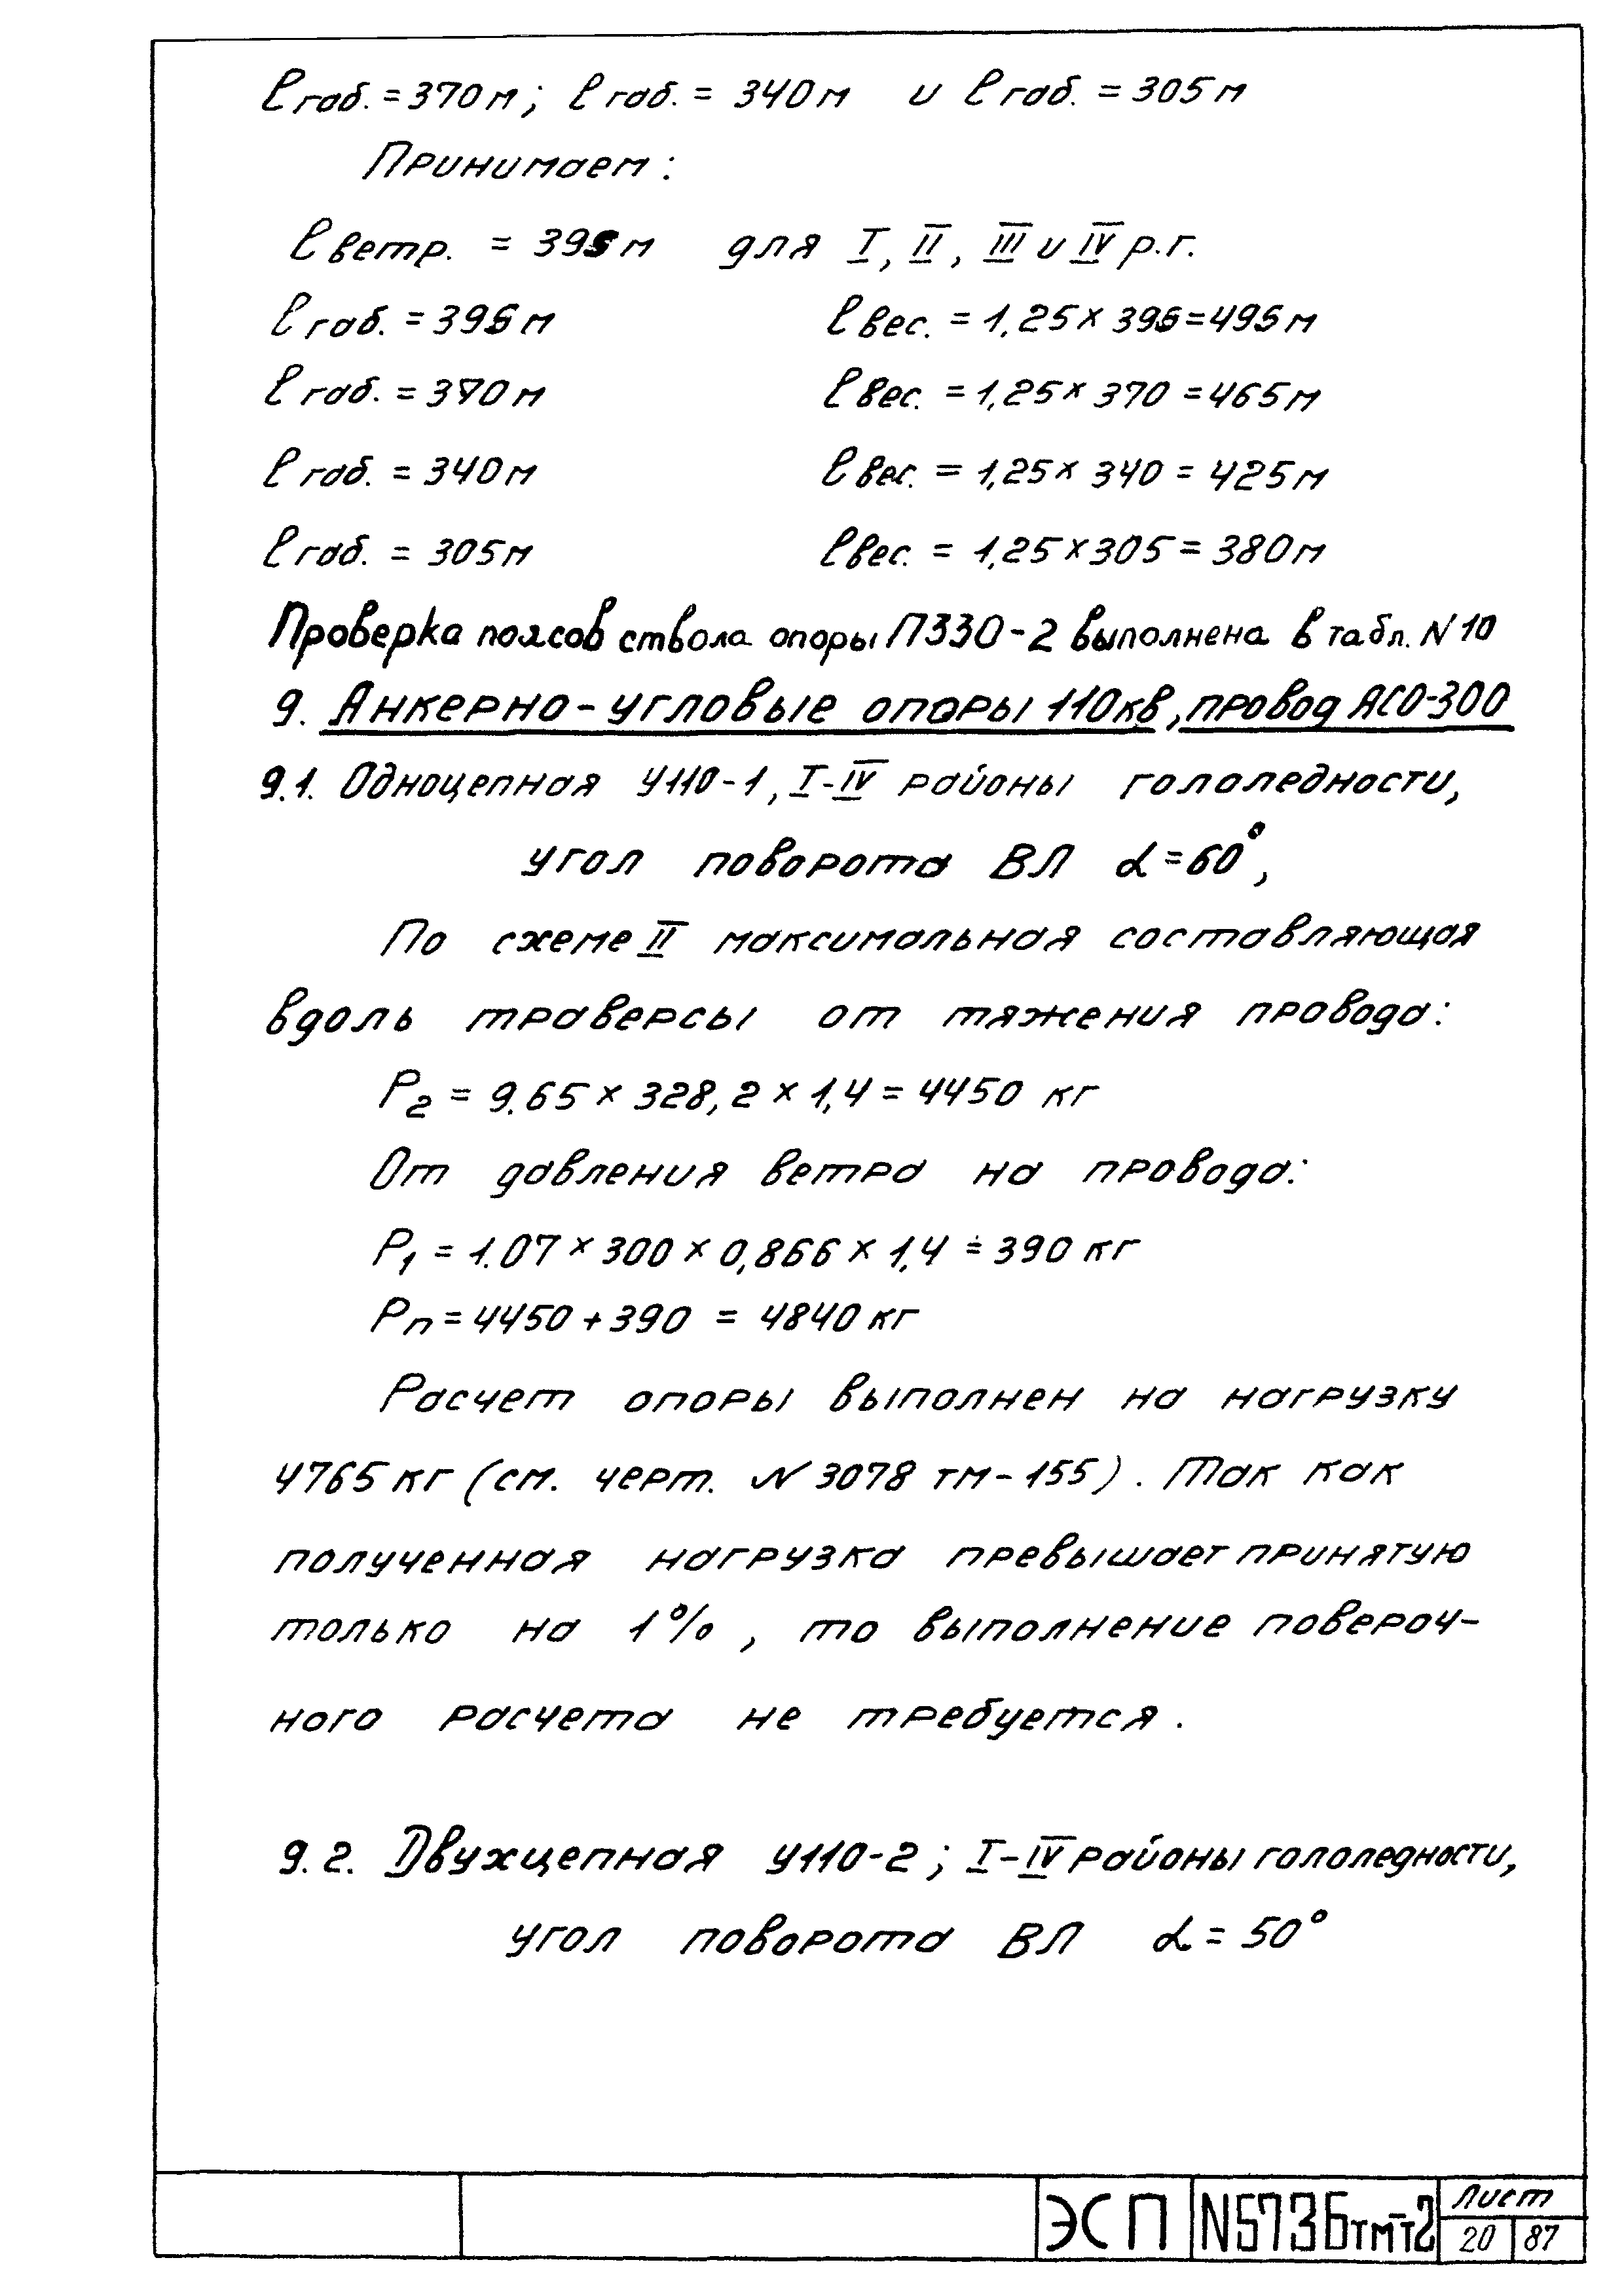 ℓ габ. = 370 м; ℓ габ. = 340 м и ℓ габ. = 305 м
Принимаем:
ℓ ветр. = 395 м для I, II, III и IV р.г.
ℓ габ. = 395 м ℓ вес. = 1,25 × 395 = 495 м
ℓ габ. = 370 м ℓ вес. = 1,25 × 370 = 465 м
ℓ габ. = 340 м ℓ вес. = 1,25 × 340 = 425 м
ℓ габ. = 305 м ℓ вес. = 1,25 × 305 = 380 м
Проверка поясов ствола опоры П330-2 выполнена в табл. N 10
9. Анкерно-угловые опоры 110кв, провод АСО-300
9.1. Одноцепная У110-1, I-IV районы гололедности,
угол поворота ВЛ α = 60°,
По схеме II максимальная составляющая
вдоль траверсы от тяжения провода:
P2 = 9.65 × 328,2 × 1,4 = 4450 кг
От давления ветра на провода:
P1 = 1.07 × 300 × 0,866 × 1,4 = 390 кг
Pп = 4450 + 390 = 4840 кг
Расчет опоры выполнен на нагрузку
4765 кг (см. черт. N 3078 тм-155). Так как
полученная нагрузка превышает принятую
только на 1%, то выполнение повероч-
ного расчета не требуется.
9.2. Двухцепная У110-2; I-IV районы гололедности,
угол поворота ВЛ α = 50°
ЭСП N5736тм-т2 Лист
20 87